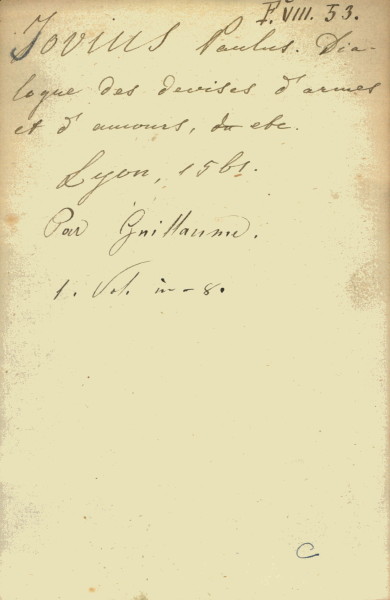 F. VIII. 53.
Jovius Paulus. Dia-
logue des devises d'armes
et d'amours, du etc.
Lyon, 1561.
Par Guillaume.
1. Vol. in-8.
C